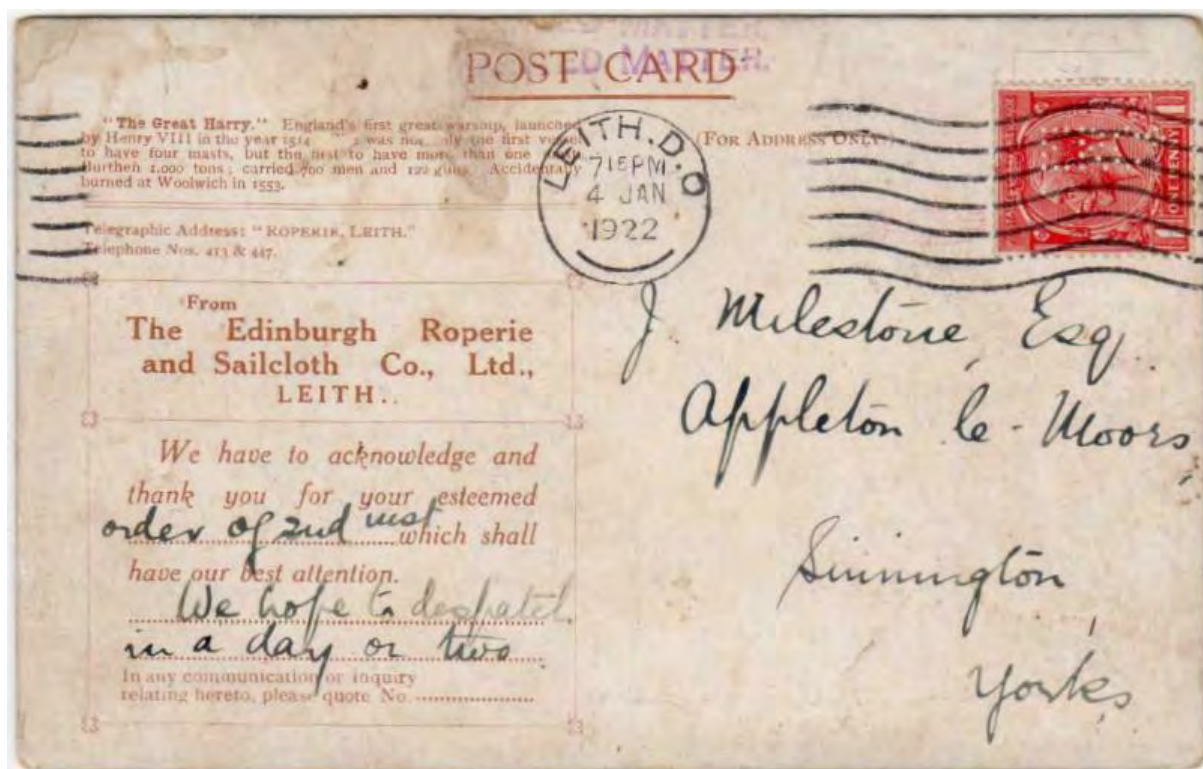 ED MATTER.
POST CARD
"The Great Harry." England's first great warship, launched
by Henry VIII in the year 1514 was not only the first vessel
to have four masts, but the first to have more than one
Burthen 1,000 tons; carried 700 men and 122 guns. Accidentally
burned at Woolwich in 1553.
Telegraphic Address: "ROPERIE, LEITH."
Telephone Nos. 413 & 447.
LEITH.D.O
7 15 PM
4 JAN
1922
(FOR ADDRESS ONLY)
ONE PENNY
From
The Edinburgh Roperie
and Sailcloth Co., Ltd.,
LEITH.
We have to acknowledge and
thank you for your esteemed
order of 2nd inst which shall
have our best attention.
We hope to despatch
in a day or two
In any communication or inquiry
relating hereto, please quote No.
J Milestone, Esq.
Appleton le-Moors,
Sinnington,
Yorks